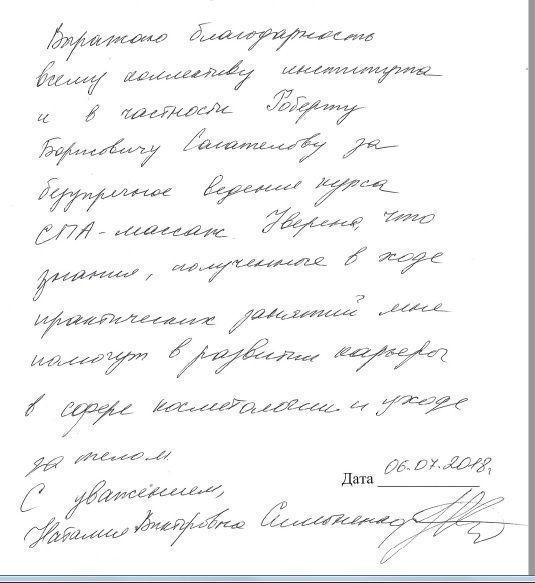 Выражаю благодарность
всему коллективу института
и в частности Роберту
Борисовичу Сагателову за
безупречное ведение курса
СПА-массаж. Уверена, что
знания, полученные в ходе
практических занятий мне
помогут в развитии карьеры
в сфере косметологии и уходе
за телом
Дата 06.07.2018г.
С уважением,
Наталия Викторовна Симоненко